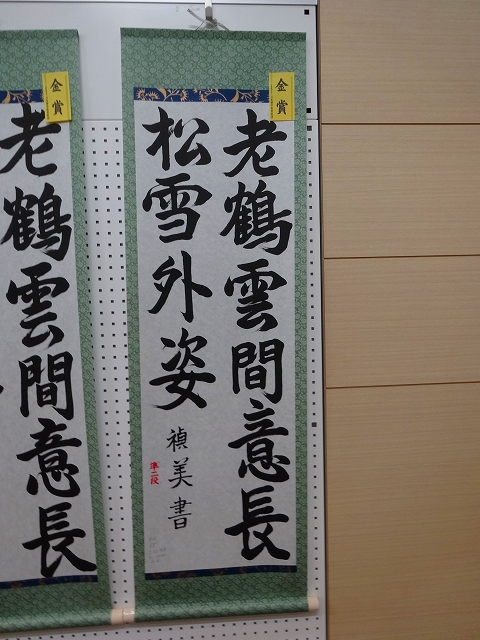 金賞
老鶴雲間意長
松雪外姿
禎美書
準二段
金賞
老鶴雲間意長